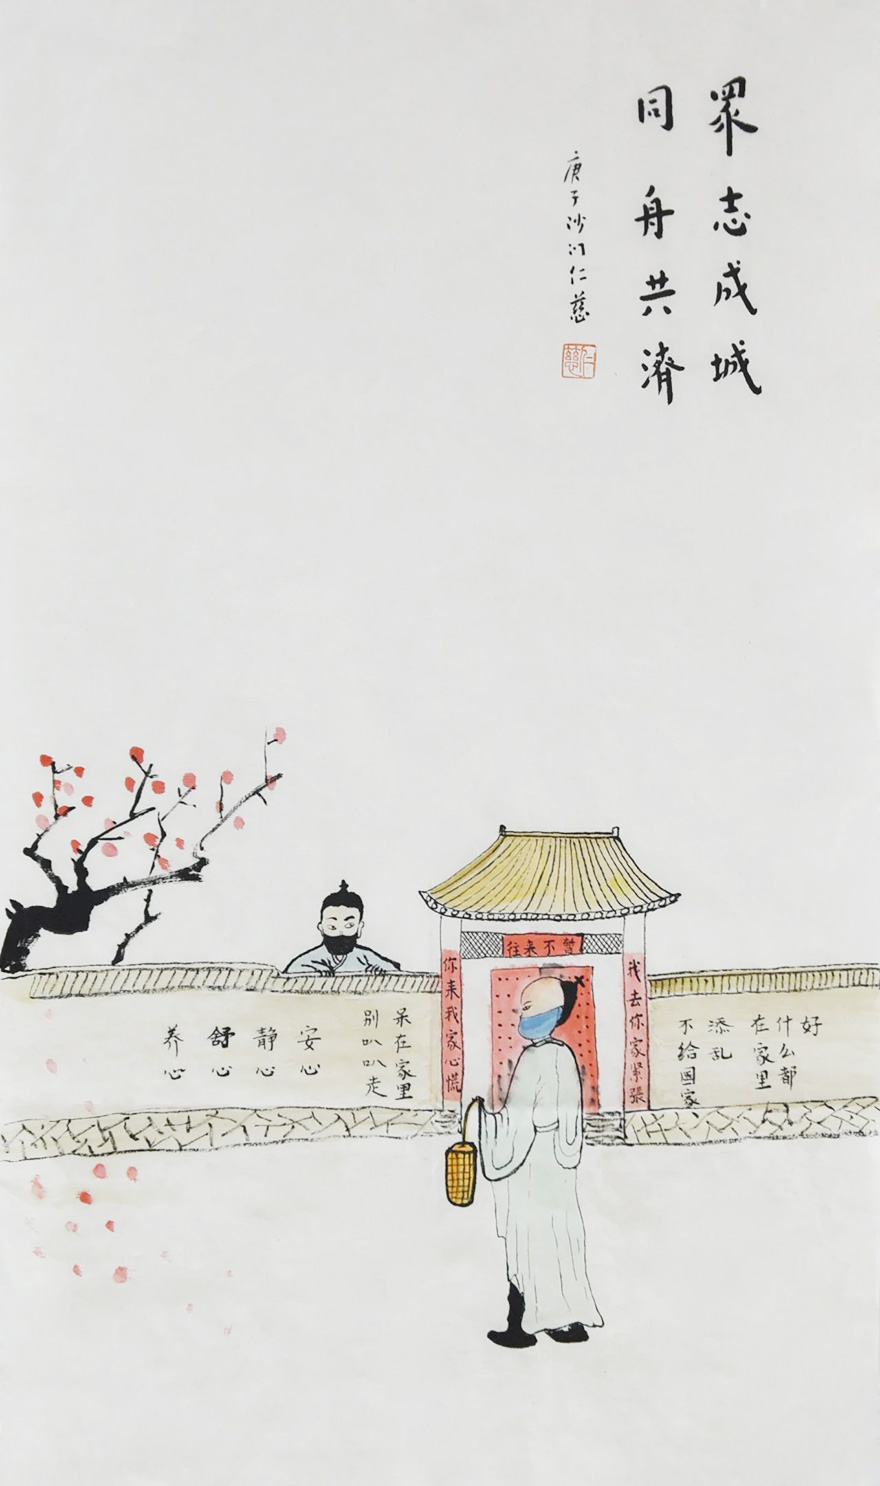 眾志成城
同舟共濟
庚子沙门仁慈
仁慈
暂不来往
我去你家紧張
你来我家心慌
不给国家、
添乱
在家里
什么都
好
呆在家里
别叭叭走
安心
静心
舒心
养心